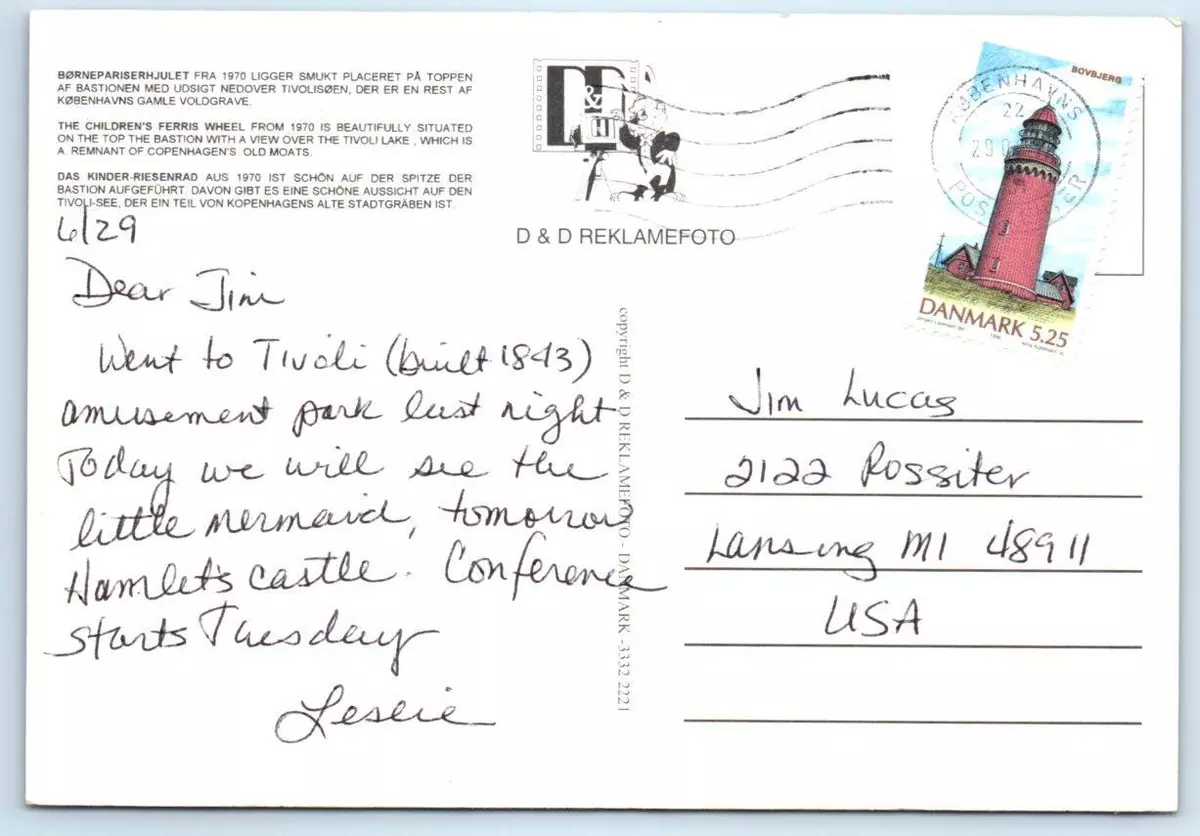 BØRNEPARISERHJULET FRA 1970 LIGGER SMUKT PLACERET PÅ TOPPEN
AF BASTIONEN MED UDSIGT NEDOVER TIVOLISØEN, DER ER EN REST AF
KØBENHAVNS GAMLE VOLDGRAVE.
THE CHILDREN'S FERRIS WHEEL FROM 1970 IS BEAUTIFULLY SITUATED
ON THE TOP THE BASTION WITH A VIEW OVER THE TIVOLI LAKE , WHICH IS
A REMNANT OF COPENHAGEN'S OLD MOATS.
DAS KINDER-RIESENRAD AUS 1970 IST SCHÖN AUF DER SPITZE DER
BASTION AUFGEFÜHRT. DAVON GIBT ES EINE SCHÖNE AUSSICHT AUF DEN
TIVOLI-SEE, DER EIN TEIL VON KOPENHAGENS ALTE STADTGRÄBEN IST.
D&D
D & D REKLAMEFOTO
BOVBJERG
KØBENHAVNS
22
POST
DANMARK 5.25
6/29
Dear Jim
Went to Tivoli (built 1843)
amusement park last night
Today we will see the
little mermaid, tomorrow
Hamlet's castle. Conference
starts Tuesday
Leslie
copyright D & D REKLAMEFOTO - DANMARK - 3332 2221
Jim Lucas
2122 Rossiter
Lansing MI 48911
USA